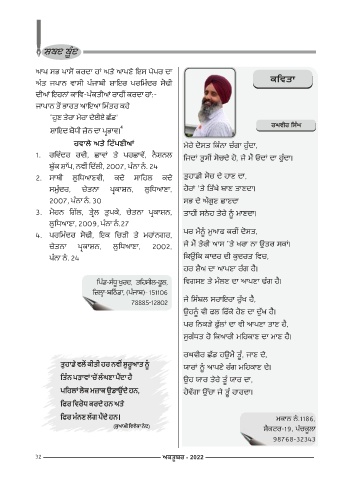 ਸ਼ਬਦ ਬੂੰਦ
ਆਪ ਸਭ ਪਾਸੋਂ ਕਰਦਾ ਹਾਂ ਅਤੇ ਆਪਣੇ ਇਸ ਪੇਪਰ ਦਾ
ਅੰਤ ਜਪਾਨ ਵਾਸੀ ਪੰਜਾਬੀ ਸ਼ਾਇਰ ਪਰਮਿੰਦਰ ਸੋਢੀ
ਦੀਆਂ ਇਹਨਾਂ ਕਾਵਿ-ਪੰਕਤੀਆਂ ਰਾਹੀਂ ਕਰਦਾ ਹਾਂ:-
ਜਾਪਾਨ ਤੋਂ ਭਾਰਤ ਆਇਆ ਮਿੱਤਰ ਕਹੇ
'ਹੁਣ ਤੇਰਾ ਮੇਰਾ ਦੋਈਏ ਛੱਡ'
ਸ਼ਾਇਦ ਬੋਧੀ ਜ਼ੇਨ ਦਾ ਪ੍ਰਭਾਵ।⁴
ਹਵਾਲੇ ਅਤੇ ਟਿੱਪਣੀਆਂ
1. ਰਵਿੰਦਰ ਰਵੀ, ਛਾਵਾਂ ਤੇ ਪਰਛਾਵੇਂ, ਨੈਸ਼ਨਲ
ਬੁੱਕ ਸ਼ਾਪ, ਨਵੀਂ ਦਿੱਲੀ, 2007, ਪੰਨਾ ਨੰ. 24
2. ਸਾਥੀ ਲੁਧਿਆਣਵੀ, ਕਦੇ ਸਾਹਿਲ ਕਦੇ
ਸਮੁੰਦਰ, ਚੇਤਨਾ ਪ੍ਰਕਾਸ਼ਨ, ਲੁਧਿਆਣਾ,
2007, ਪੰਨਾ ਨੰ. 30
3. ਮੋਹਨ ਗਿੱਲ, ਤ੍ਰੇਲ ਤੁਪਕੇ, ਚੇਤਨਾ ਪ੍ਰਕਾਸ਼ਨ,
ਲੁਧਿਆਣਾ, 2009, ਪੰਨਾ ਨੰ.27
4. ਪਰਮਿੰਦਰ ਸੋਢੀ, ਇਕ ਚਿੜੀ ਤੇ ਮਹਾਂਨਗਰ,
ਚੇਤਨਾ ਪ੍ਰਕਾਸ਼ਨ, ਲੁਧਿਆਣਾ, 2002,
ਪੰਨਾ ਨੰ. 24
ਪਿੰਡ-ਸੰਧੂ ਖੁਰਦ, ਤਹਿਸੀਲ-ਫੂਲ,
ਜ਼ਿਲ੍ਹਾ-ਬਠਿੰਡਾ, (ਪੰਜਾਬ)- 151106
78885-12802
ਤੁਹਾਡੇ ਵਲੋਂ ਕੀਤੀ ਹਰ ਨਵੀਂ ਸ਼ੁਰੂਆਤ ਨੂੰ
ਤਿੰਨ ਪੜਾਵਾਂ 'ਚੋਂ ਲੰਘਣਾ ਪੈਂਦਾ ਹੈ
ਪਹਿਲਾਂ ਲੋਕ ਮਜ਼ਾਕ ਉਡਾਉਂਦੇ ਹਨ,
ਫਿਰ ਵਿਰੋਧ ਕਰਦੇ ਹਨ ਅਤੇ
ਫਿਰ ਮੰਨਣ ਲੱਗ ਪੈਂਦੇ ਹਨ।
ਕਵਿਤਾ
ਰਘਬੀਰ ਸਿੰਘ
ਮੇਰੇ ਦੋਸਤ ਕਿੰਨਾ ਚੰਗਾ ਹੁੰਦਾ,
ਜਿਦਾਂ ਤੁਸੀਂ ਸੋਚਦੇ ਹੋ, ਜੇ ਮੈਂ ਓਦਾਂ ਦਾ ਹੁੰਦਾ।
ਤੁਹਾਡੀ ਸੋਚ ਦੇ ਹਾਣ ਦਾ,
ਹੋਰਾਂ 'ਤੇ ਤਿੱਖੇ ਬਾਣ ਤਾਣਦਾ।
ਸਭ ਦੇ ਔਗੁਣ ਛਾਣਦਾ
ਤਾਹੀਂ ਸਨੇਹ ਤੇਰੇ ਨੂੰ ਮਾਣਦਾ।
ਪਰ ਮੈਨੂੰ ਮੁਆਫ਼ ਕਰੀਂ ਦੋਸਤ,
ਜੇ ਮੈਂ ਤੇਰੀ ਆਸ 'ਤੇ ਖਰਾ ਨਾ ਉਤਰ ਸਕਾਂ।
ਕਿਉਂਕਿ ਕਾਦਰ ਦੀ ਕੁਦਰਤ ਵਿਚ,
ਹਰ ਸ਼ੈਅ ਦਾ ਆਪਣਾ ਰੰਗ ਹੈ।
ਵਿਗਸਣ ਤੇ ਮੌਲਣ ਦਾ ਆਪਣਾ ਢੰਗ ਹੈ।
ਜੇ ਸਿੰਬਲ ਸਰਾਇਰਾ ਰੁੱਖ ਹੈ,
ਉਹਨੂੰ ਵੀ ਫਲ ਫਿੱਕੇ ਹੋਣ ਦਾ ਦੁੱਖ ਹੈ।
ਪਰ ਨਿਕੜੇ ਫੁੱਲਾਂ ਦਾ ਵੀ ਆਪਣਾ ਤਾਣ ਹੈ,
ਸੁਗੰਧਤ ਹੋ ਕਿਆਰੀ ਮਹਿਕਾਣ ਦਾ ਮਾਣ ਹੈ।
ਰਘਬੀਰ ਛੱਡ ਹਉਮੈਂ ਤੂੰ, ਜਾਣ ਦੇ,
ਯਾਰਾਂ ਨੂੰ ਆਪਣੇ ਰੰਗ ਮਹਿਕਾਣ ਦੇ।
ਉਹ ਯਾਰ ਤੇਰੇ ਤੂੰ ਯਾਰ ਦਾ,
ਹੋਵੇਂਗਾ ਉੱਚਾ ਜੇ ਤੂੰ ਹਾਰਦਾ।
ਮਕਾਨ ਨੰ.1186,
ਸੈਕਟਰ-19, ਪੰਚਕੂਲਾ
98768-32343
32
ਅਕਤੂਬਰ - 2022